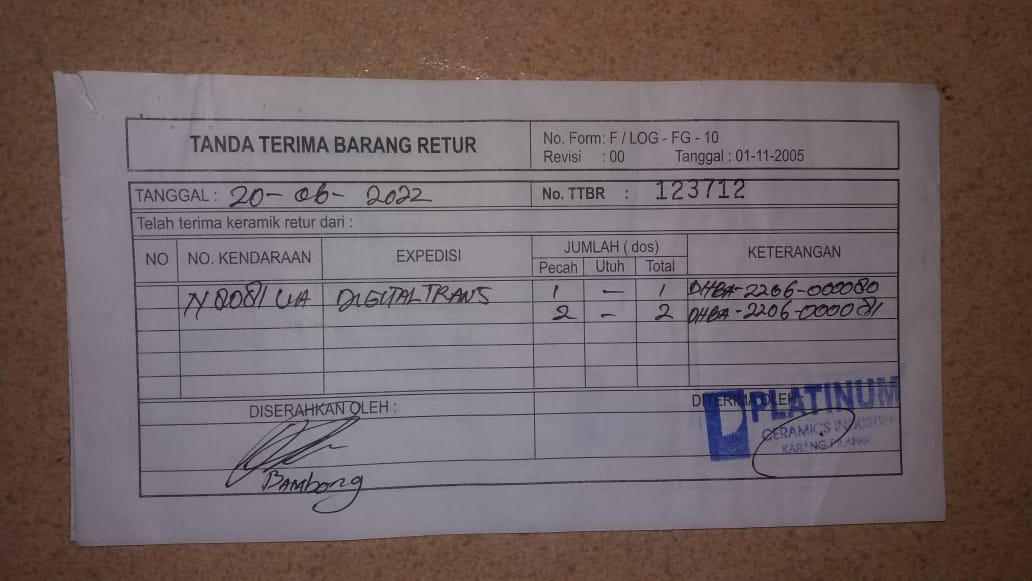 TANDA TERIMA BARANG RETUR
No. Form: F / LOG - FG - 10
Revisi : 00 Tanggal : 01-11-2005
TANGGAL : 20-06-2022
No. TTBR : 123712
Telah terima keramik retur dari :
NO NO. KENDARAAN EXPEDISI JUMLAH ( dos) KETERANGAN
Pecah Utuh Total
N 8081 UA DIGITAL TRANS 1 - 1 DHBA-2206-000080
2 - 2 DHBA-2206-000081
DISERAHKAN OLEH : DITERIMA OLEH :
PLATINUM
CERAMICS INDUSTRY
KARANG PILANG
Bambang